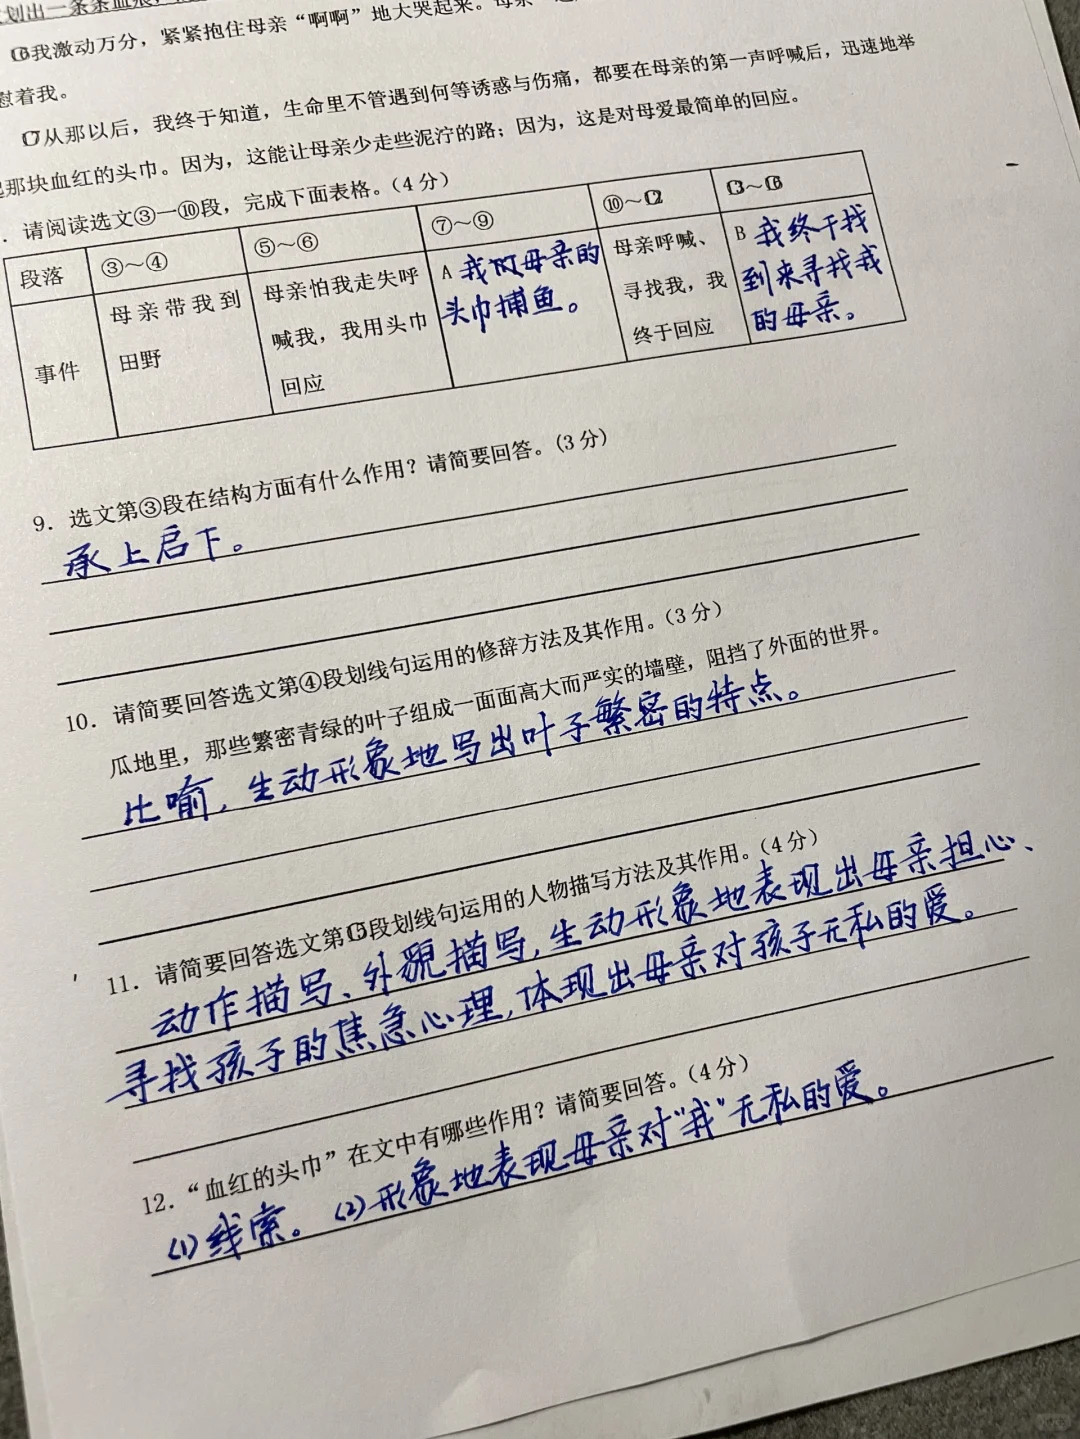 划出一条条血痕，
⑯我激动万分，紧紧抱住母亲“啊啊”地大哭起来。母亲
慰着我。
⑰从那以后，我终于知道，生命里不管遇到何等诱惑与伤痛，都要在母亲的第一声呼喊后，迅速地举
起那块血红的头巾。因为，这能让母亲少走些泥泞的路；因为，这是对母爱最简单的回应。
．请阅读选文③—⑩段，完成下面表格。（4 分）
段落 ③～④ ⑤～⑥ ⑦～⑨ ⑩～⑫ ⑬～⑯
事件
母亲带我到
田野
母亲怕我走失呼
喊我，我用头巾
回应
A 我用母亲的
头巾捕鱼。
母亲呼喊、
寻找我，我
终于回应
B 我终于找
到来寻找我
的母亲。
9．选文第③段在结构方面有什么作用？请简要回答。(3 分)
承上启下。
10．请简要回答选文第④段划线句运用的修辞方法及其作用。（3 分）
瓜地里，那些繁密青绿的叶子组成一面面高大而严实的墙壁，阻挡了外面的世界。
比喻，生动形象地写出叶子繁密的特点。
11．请简要回答选文第⑮段划线句运用的人物描写方法及其作用。（4 分）
动作描写、外貌描写，生动形象地表现出母亲担心、
寻找孩子的焦急心理，体现出母亲对孩子无私的爱。
12．“血红的头巾”在文中有哪些作用？请简要回答。（4 分）
(1)线索。(2)形象地表现母亲对“我”无私的爱。